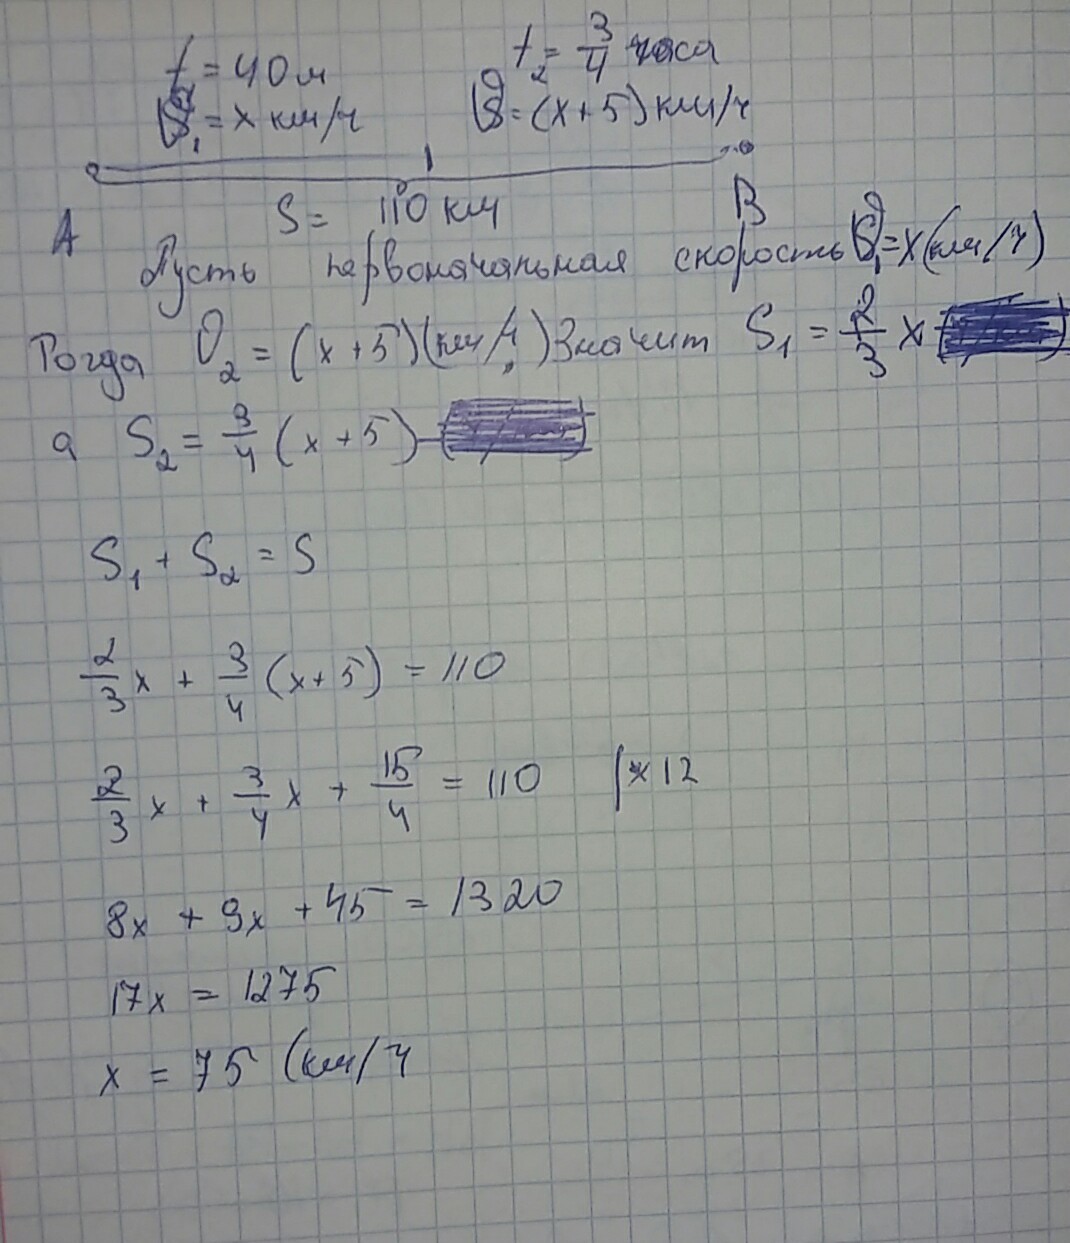 t = 40 м
t₂ = 3/4 часа
V₁ = x км/ч
V = (x+5) км/ч
S = 110 км
A
B
Пусть первоначальная скорость V₁ = x (км/ч)
Тогда V₂ = (x+5)(км/ч) Значит S₁ = 2/3 x
а S₂ = 3/4 (x+5)
S₁ + S₂ = S
2/3 x + 3/4 (x+5) = 110
2/3 x + 3/4 x + 15/4 = 110 |×12
8x + 9x + 45 = 1320
17x = 1275
x = 75 (км/ч